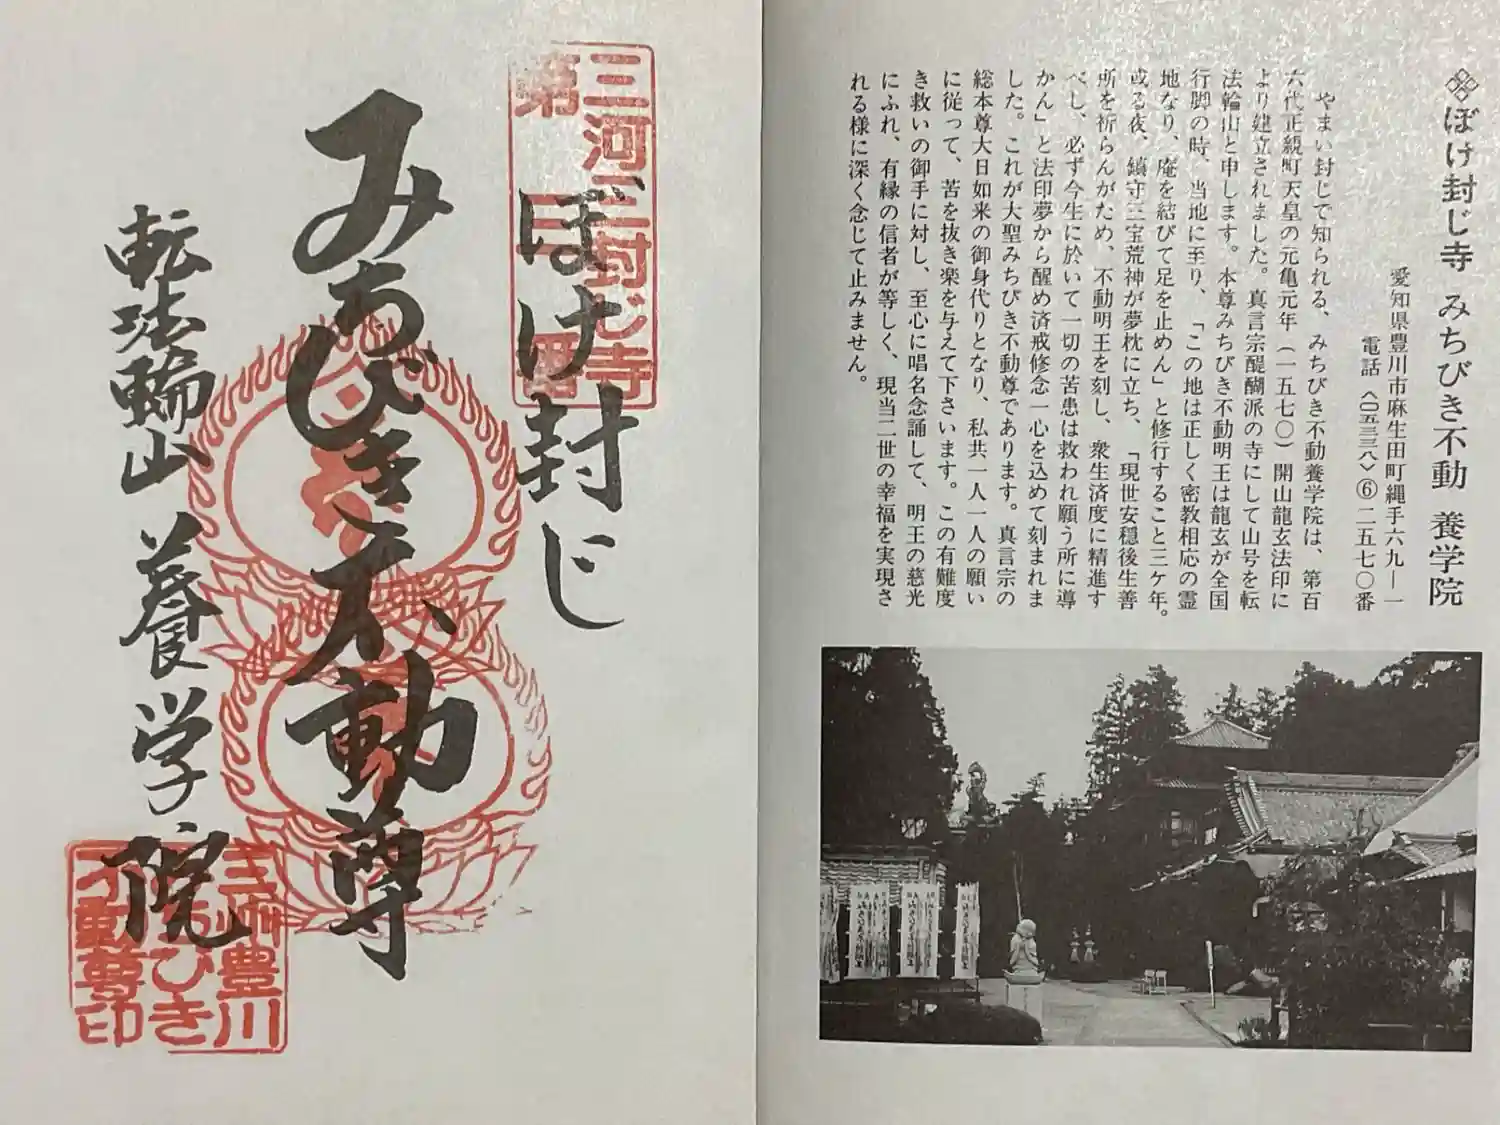 ぼけ封じ寺 みちびき不動 養学院
愛知県豊川市麻生田町縄手六九―一
電話〈〇五三三八〉⑥二五七〇番
やまい封じで知られる、みちびき不動養学院は、第百
六代正親町天皇の元亀元年(一五七〇)開山龍玄法印に
より建立されました。真言宗醍醐派の寺にして山号を転
法輪山と申します。本尊みちびき不動明王は龍玄が全国
行脚の時、当地に至り、「この地は正しく密教相応の霊
地なり、庵を結びて足を止めん」と修行すること三ケ年。
或る夜、鎮守三宝荒神が夢枕に立ち、「現世安穏後生善
所を祈らんがため、不動明王を刻し、衆生済度に精進す
べし、必ず今生に於いて一切の苦患は救われ願う所に導
かん」と法印夢から醒め済戒修念一心を込めて刻まれま
した。これが大聖みちびき不動尊であります。真言宗の
総本尊大日如来の御身代りとなり、私共一人一人の願い
に従って、苦を抜き楽を与えて下さいます。この有難度
き救いの御手に対し、至心に唱名念誦して、明王の慈光
にふれ、有縁の信者が等しく、現当二世の幸福を実現さ
れる様に深く念じて止みません。
三河三封じ寺
第二番
ぼけ封じ
みちびき不動尊
転法輪山 養学院
三州豊川
みちびき
不動尊印